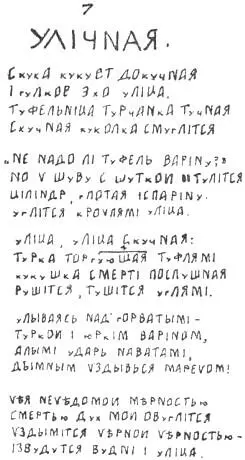 7
УЛІЧNАЯ.
СКУКА КУКУЕТ ДОКУЧNАЯ
І ГУЛКОЕ ЭХО УЛІЦА.
ТУФЕЛЬNІЦА ТУРЧАNКА ТУЧNАЯ
СКУЧNАЯ КУКОЛКА СМУГЛІТСЯ
„NЕ NАДО ЛІ ТУФЕЛЬ ВАРІNУ?"
NО V ШУВУ С ШУТКОЙ ТУЛІТСЯ
ЦІЛІNДР, ГЛОТАЯ ІСПАРІNУ.
УГЛІТСЯ КРОVЛЯМІ УЛІЦА.
УЛІЦА, УЛІЦА СКУЧNАЯ:
ТУРКА ТОРГУЮЩАЯ ТУФЛЯМІ
КУКУШКА СМЕРТІ ПОСЛУШNАЯ
РУШІТСЯ, ТУШІТСЯ УГЛЯМІ.
УЛЫВАЯСЬ NАД ГОРВАТЫМІ-
ТУРКОЙ І ЮРКІМ ВАРІNОМ,
АЛЫМІ УДАРЬ NАВАТАМІ,
ДЫМNЫМ VЗДЫВЬСЯ МАРЕVОМ!
VѢЯ NЕVѢДОМОЙ МѢРNОСТЬЮ
СМЕРТЬЮ ДУХ МОЙ ОВУГЛІТСЯ
VЗДЫМІТСЯ VѢРNОЙ VѢРNОСТЬЮ-
ІЗVУДУТСЯ ВУДNІ І УЛІЦА.